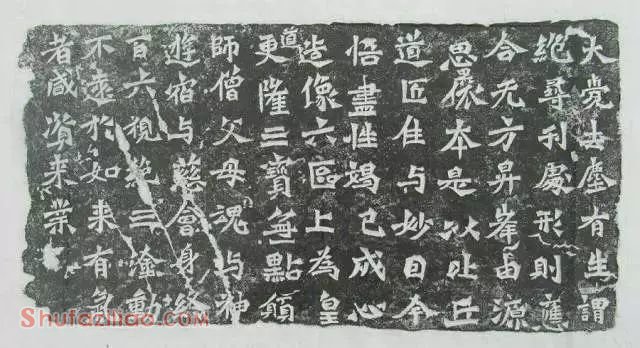 大覺去塵有生謂
絕尋刊處形則應
合无方昇峯由源
思攘本是以比丘
道匠住与妙因今
悟盡性竭己成心
造像六區上為皇
道更隆三寶無點願
師僧父母魂与神
遊宿与慈會身
百六視絕三塗動
不遠於如来有
者咸資来業
Shufaziliao.com